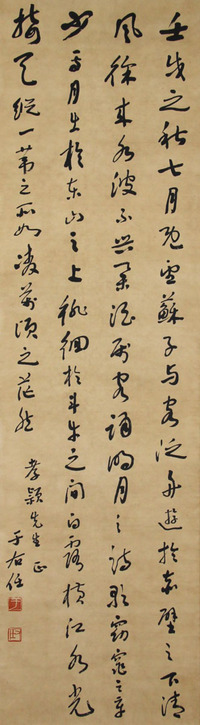 壬戌之秋七月既望蘇子与客泛舟遊於赤壁之下清
風徐来水波不興舉酒屬客誦明月之詩歌窈窕之章
少焉月出於东山之上徘徊於斗牛之间白露横江水光
接天縱一葦之所如凌萬頃之茫然
孝颖先生正
于右任